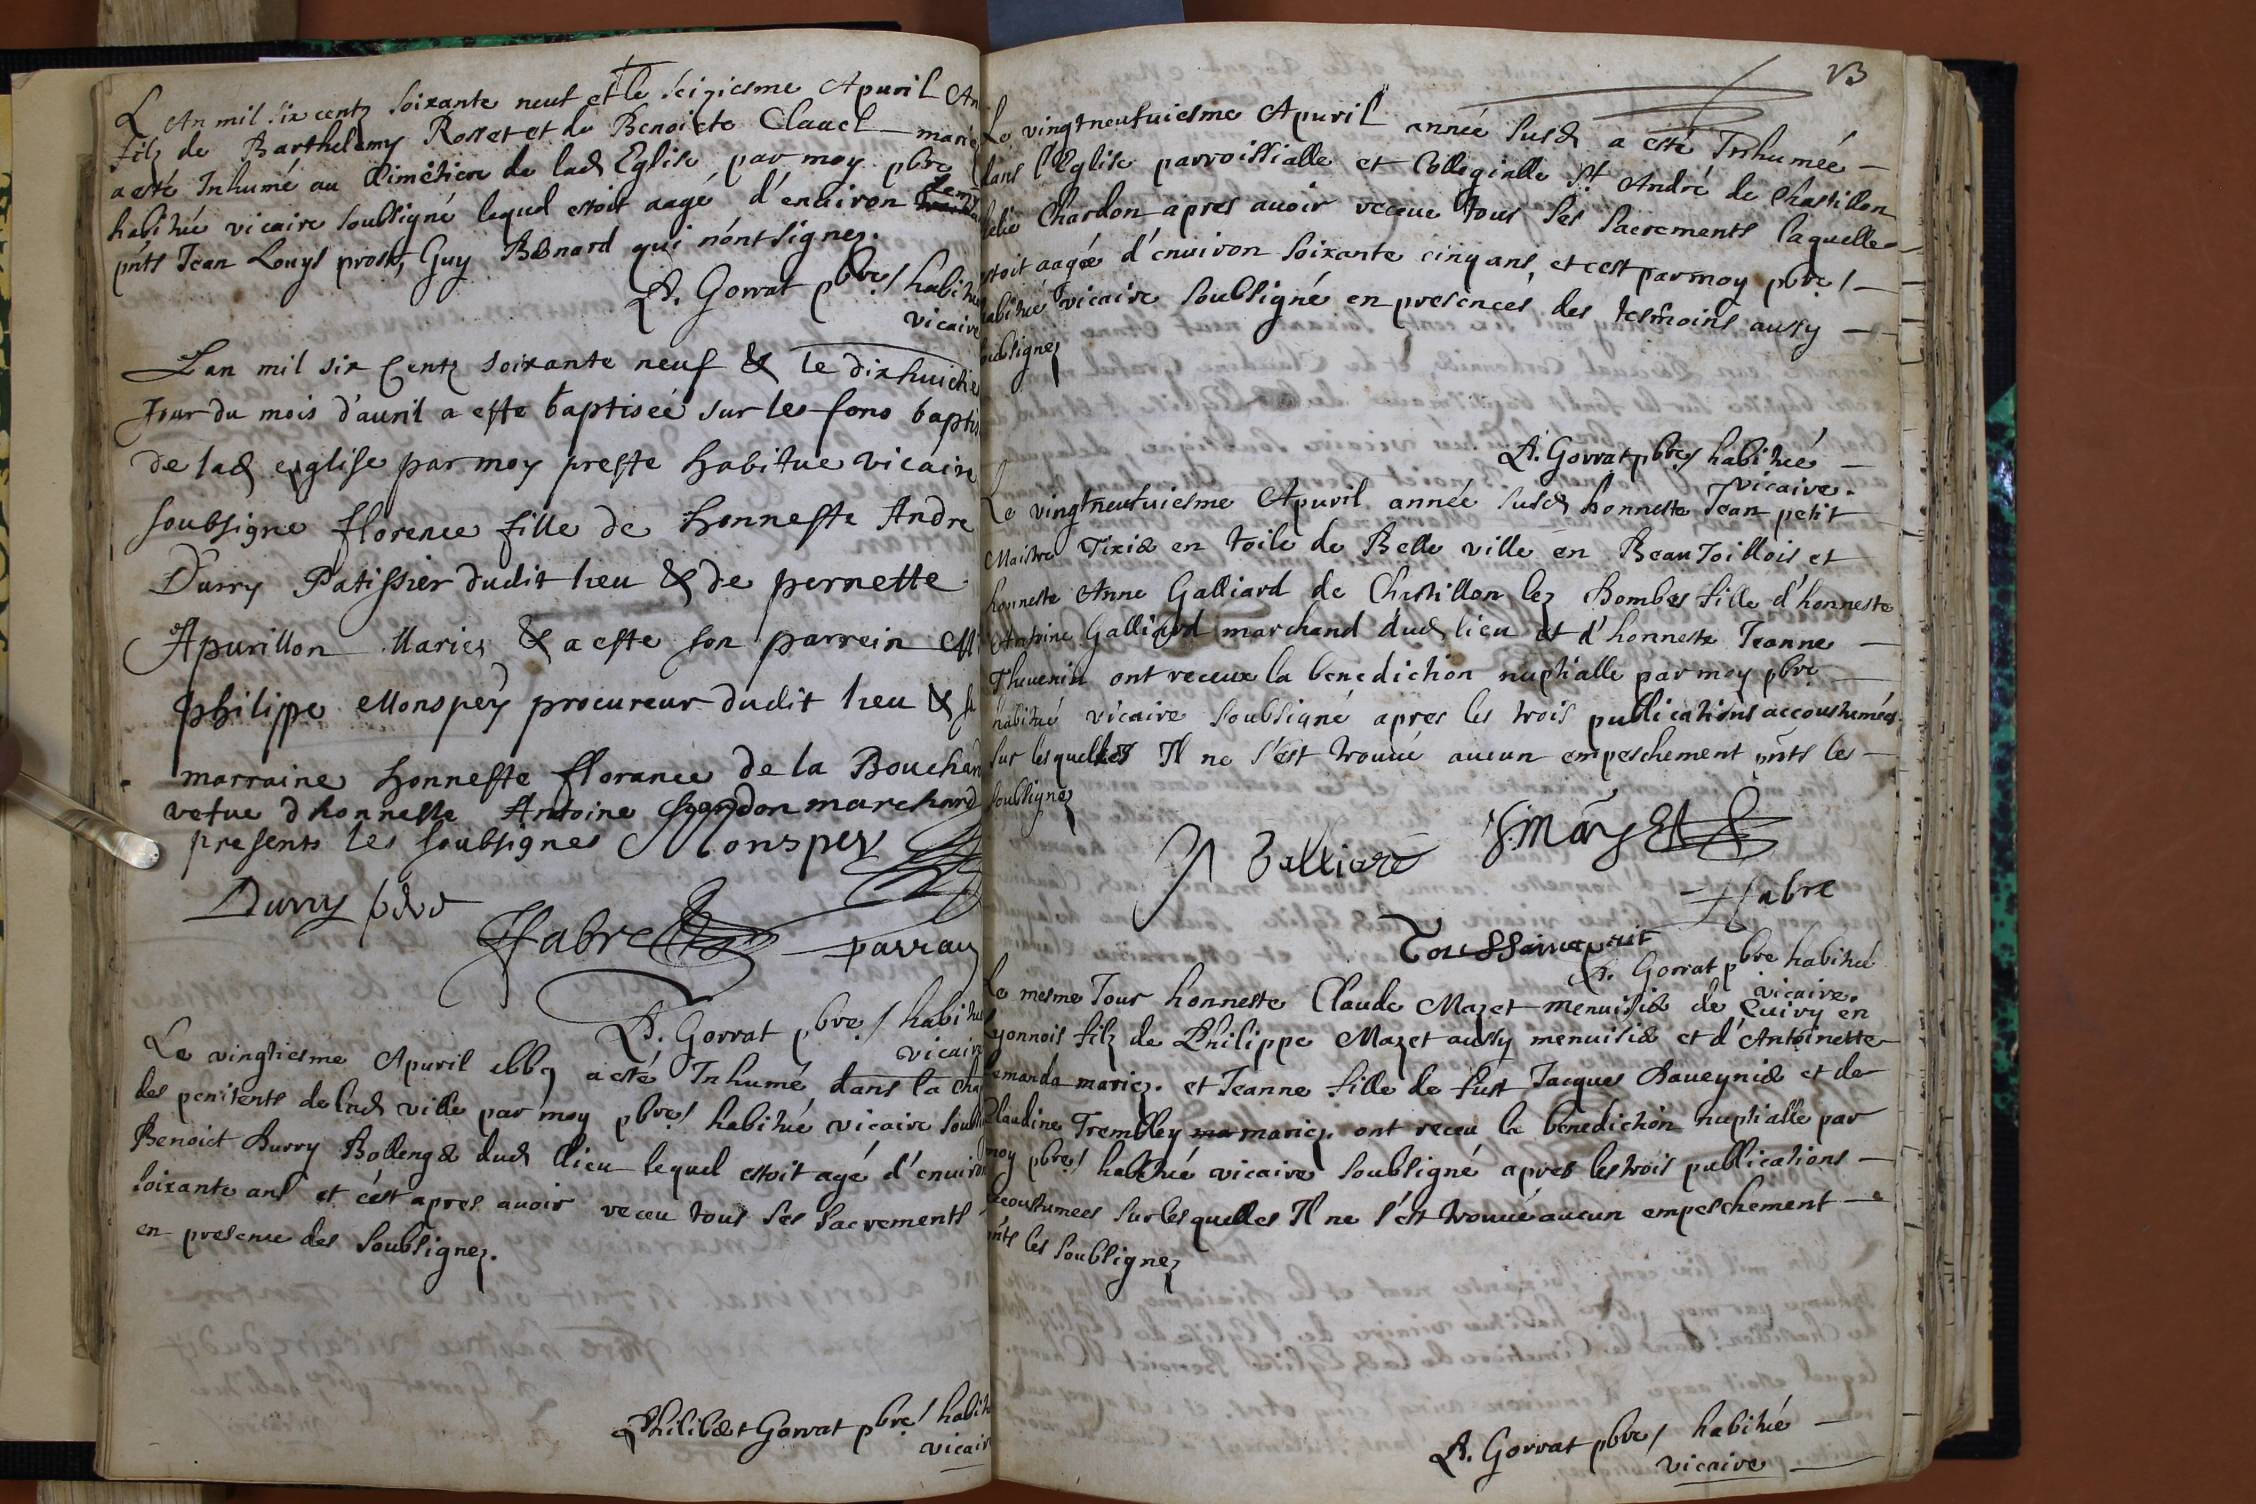 L An mil six centz soixante neuf et le seiziesme Apuril An
filz de Barthelemy Rosset et de Benoicte Claael marie
a esté Inhumé au Cimetiere de lad Eglise par moy pbre
habitué vicaire soubsigné lequel estoit aagé d'enuiron
pnts Jean Louys prost, Guy Bonard qui n'ont signez.
P. Gorrat pbre / habitu
vicaire
Lan mil six Centz soixante neuf & le dixhuictie
Jour du mois d'auril a este baptiseé sur les fons baptis
de lad esglise par moy prestre habitue vicaire
soubsigne florence fille de honneste Andre
Durry Patissier dudit lieu & de pernette
Apurillon Maries & a este son parrein M
philippe Monspey procureur dudit lieu & sa
marraine honneste florance de la Bouchar
vefue d honneste Antoine marchand
presents les soubsignes Monspey
Durry
ffabre parrain
P. Gorrat pbre / habitu
vicaire
Le vingtiesme Apuril 1669 a esté Inhumé dans la cha
des penitents de lad ville par moy pbre / habitué vicaire soubs
Benoict Durry Bolleng dud lieu lequel estoit agé d'enuiron
soixante ans et c'est apres auoir receu tous ses sacrements
en presence des soubsignez.
Philibert Gorrat pbre / habit
vicair
23
Le vingtneufuiesme Apuril année susd a esté Inhumée
dans l'Eglise parroissialle et Collegialle St André de Chastillon
Chardon apres auoir receue tous ses sacrements laquelle
estoit aagée d'enuiron soixante cinq ans, et c'est par moy pbre /
habitué vicaire soubsigné en presences des tesmoins aussy
soubsignez
P. Gorrat pbre / habitué
vicaire.
Le vingtneufuiesme Apuril année susd honneste Jean petit
Maistre Tixie en toile de Belle ville en Beaujoillois et
honneste Anne Galliard de Chastillon lez Dombes fille d'honneste
Galliard marchand dud lieu et d'honneste Jeanne
Thuuenin ont receue la benediction nuptialle par moy pbre
habitué vicaire soubsigné apres les trois publications accoustumées
sur lesquelles Il ne s'est trouué aucun empeschement pnts les
soubsignez
Galliard
ffabre
Toussainct petit
P. Gorrat pbre habitué
vicaire.
Le mesme Jour honneste Claude Mazet menuisie de Cuiry en
Lyonnois filz de Philippe Mazet aussy menuisie et d'Antoinette
mariez. et Jeanne fille de fust Jacques Daueynie et de
Claudine Trembley mariez. ont receu la benediction nuptialle par
moy pbre / habitué vicaire soubsigné apres les trois publications
accoustumees sur lesquelles Il ne s'est trouué aucun empeschement
pnts les soubsignez
P. Gorrat pbre / habitué
vicaire